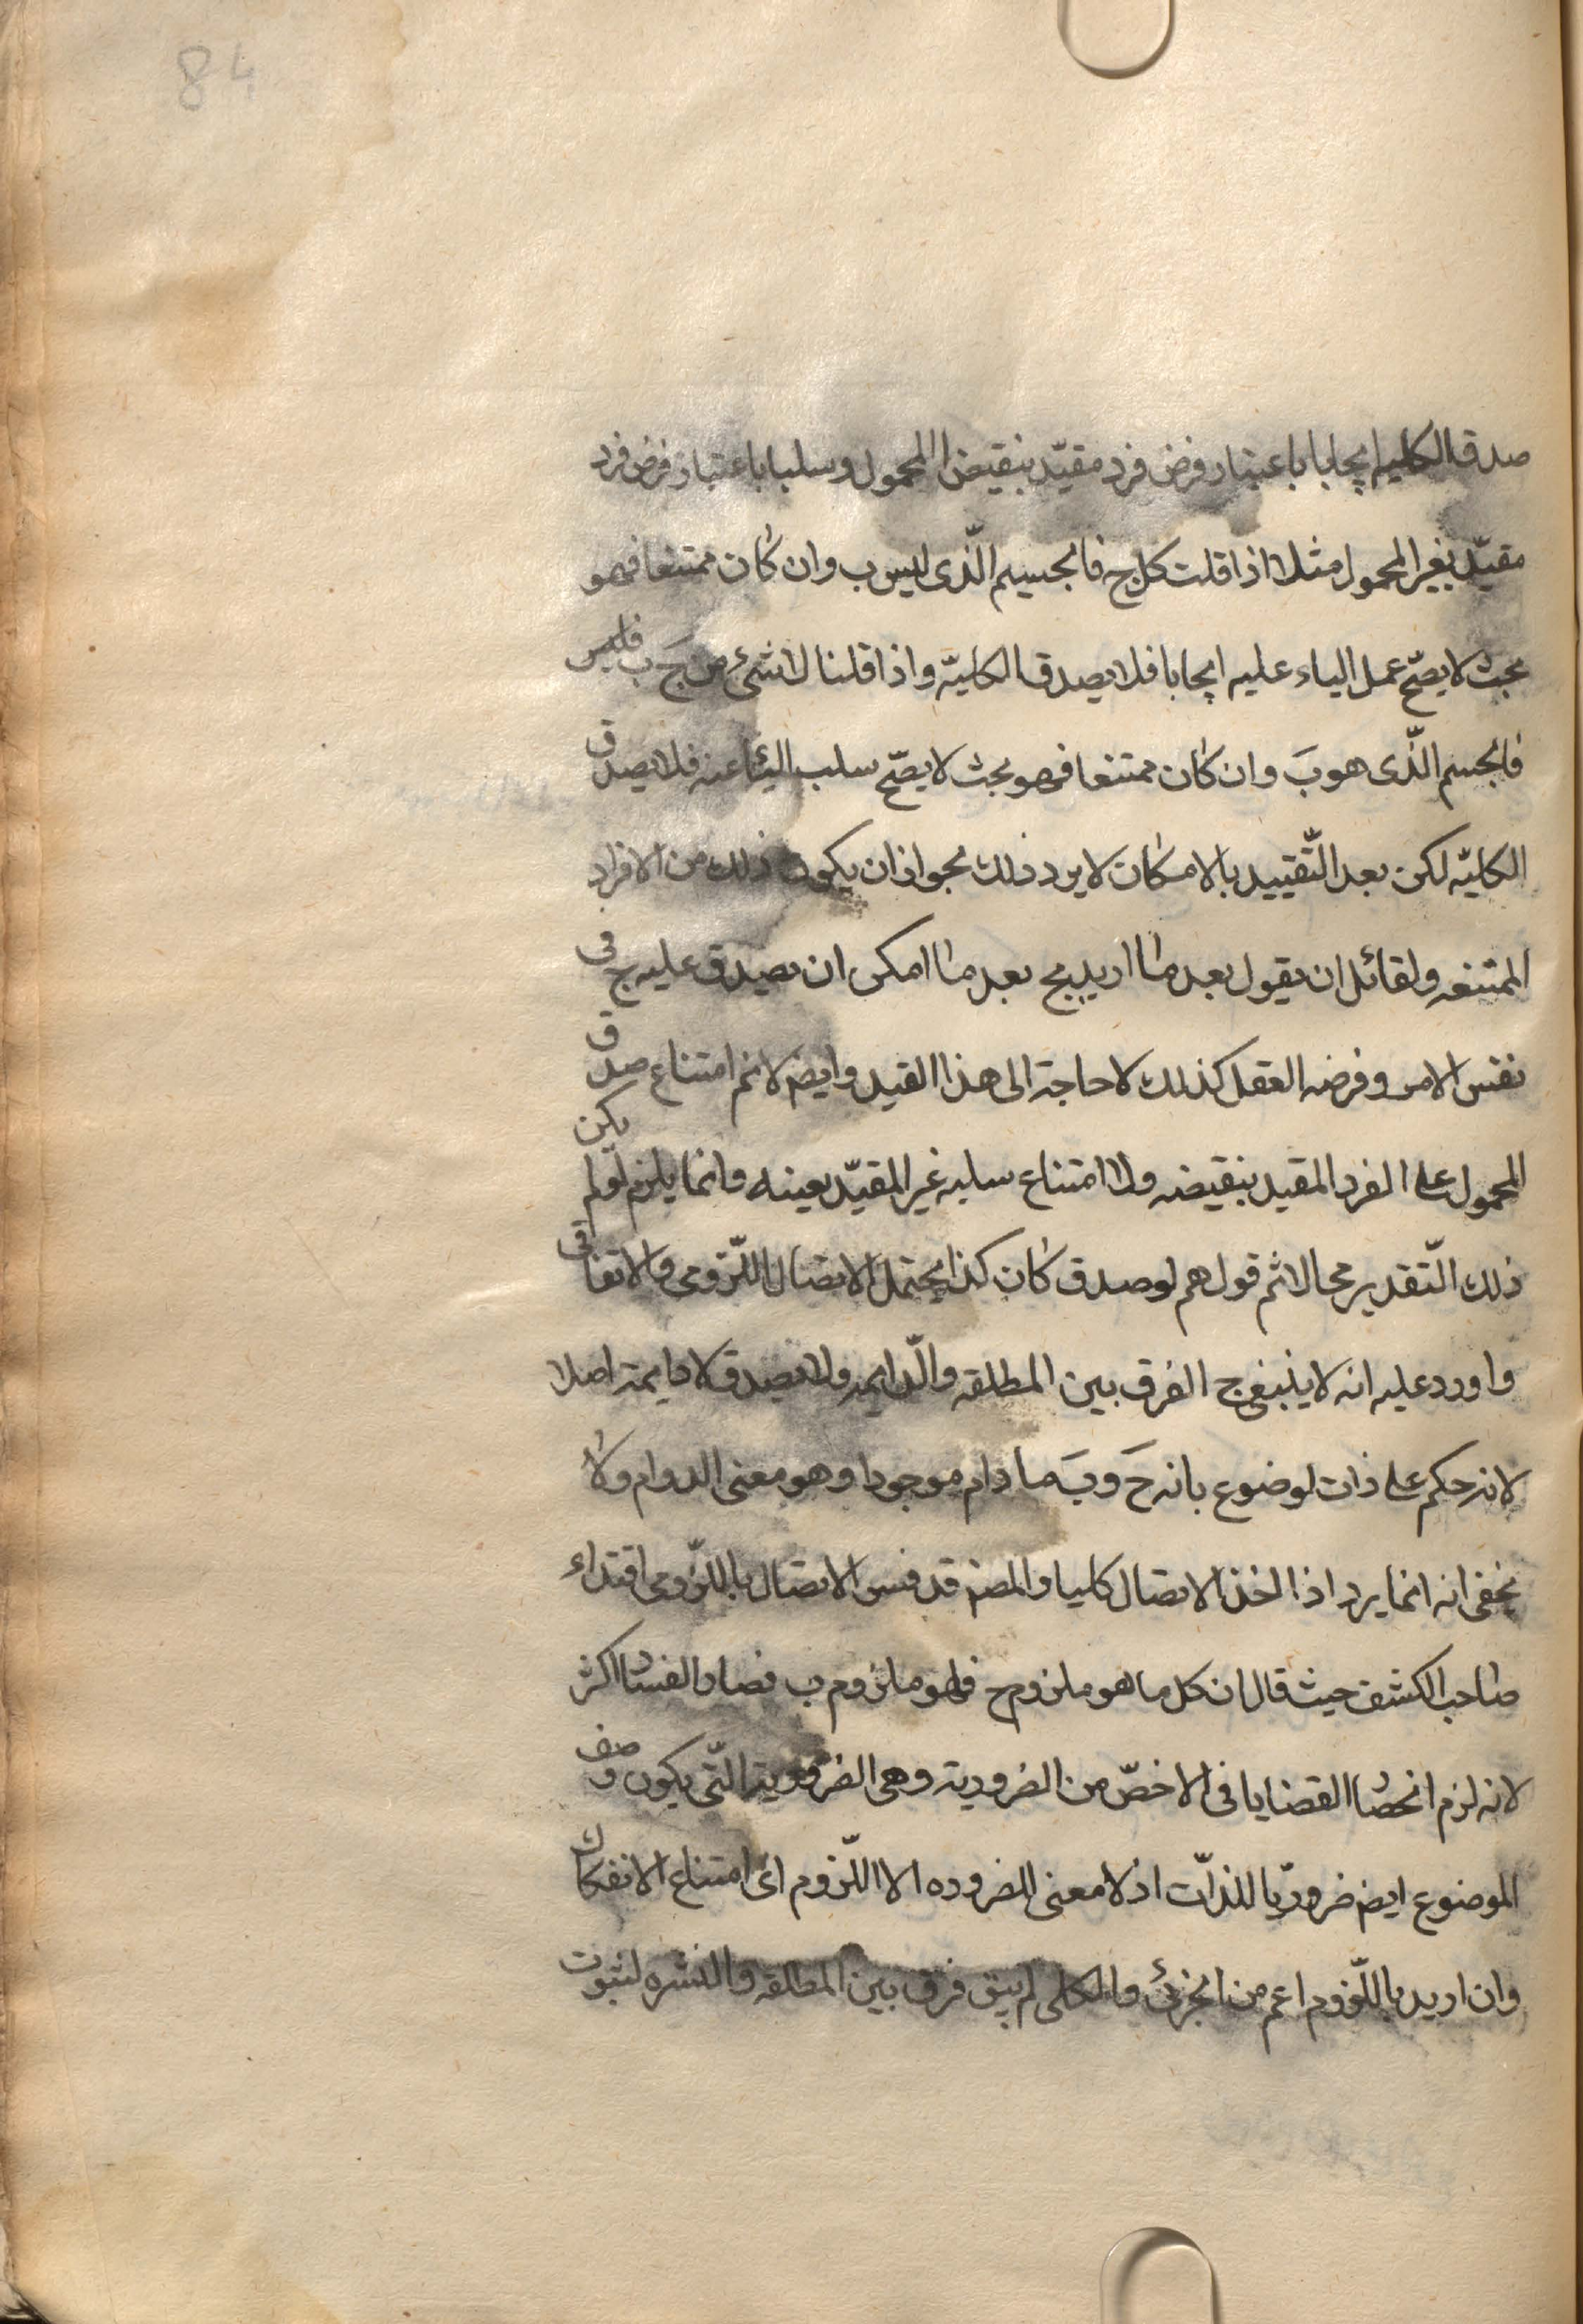 84
صدق الكليه ايجابا باعتبار فرض فرد مقيّد بنقيض المحمول وسلبا باعتبار فرض فرد
مقيّد بغير المحمول مثلا اذا قلت كل ج فالجسم الّذى ليس ب وان كان ممتنعا فهو
بحيث لا يصحّ حمل الباء عليه ايجابا فلا يصدق الكليّه واذا قلنا لا شئ من ج ب فليس
فالجسم الّذى هو ب وان كان ممتنعا فهو بحيث لا يصحّ سلب الباء عنه فلا يصدق
الكليّه لكن بعد التّقييد بالامكان لا يرد ذلك بجواز ان يكون ذلك من الافراد
الممتنعه ولقائل ان يقول بعد ما اريد بج بعد ما امكن ان يصدق عليه ج فى
نفس الامر وفرضه العقل كذلك لا حاجة الى هذا القيد وايضا لانم امتناع صدق
المحمول على الفرد المقيد بنقيضه ولا امتناع سلبه غير المقيّد بعينه وانما يلزم لو لم يكن
ذلك التّقدير محالا ثم قولهم لو صدق كان كذا يحتمل الاتصال اللّزومى والاتفاقى
واورد عليه انه لا ينبغى ج الفرق بين المطلقه والدّايمه ولا يصدق لا دايمة اصلا
لانه حكم على ذات لوضوع بانه ج وب ما دام موجودا وهو معنى الدوام ولا
يخفى انه انما يرد اذا اخذ الاتصال كليا والمصنف قد فسر الاتصال باللّزومى اقتداء
صاحب الكشف حيث قال ان كل ما هو ملزوم ج فهو ملزوم ب فصار الفساد اكثر
لانه لزم انحصار القضايا فى الاخصّ من الضرورية وهى الضرورية الّتى يكون وصف
الموضوع ايضا ضروريّا للذّات اذ لا معنى للضروره الا اللّزوم اى امتناع الانفكاك
وان اريد باللّزوم اعم من الجزئى والكلى لم يبق فرق بين المطلقه والمنتشره لثبوت